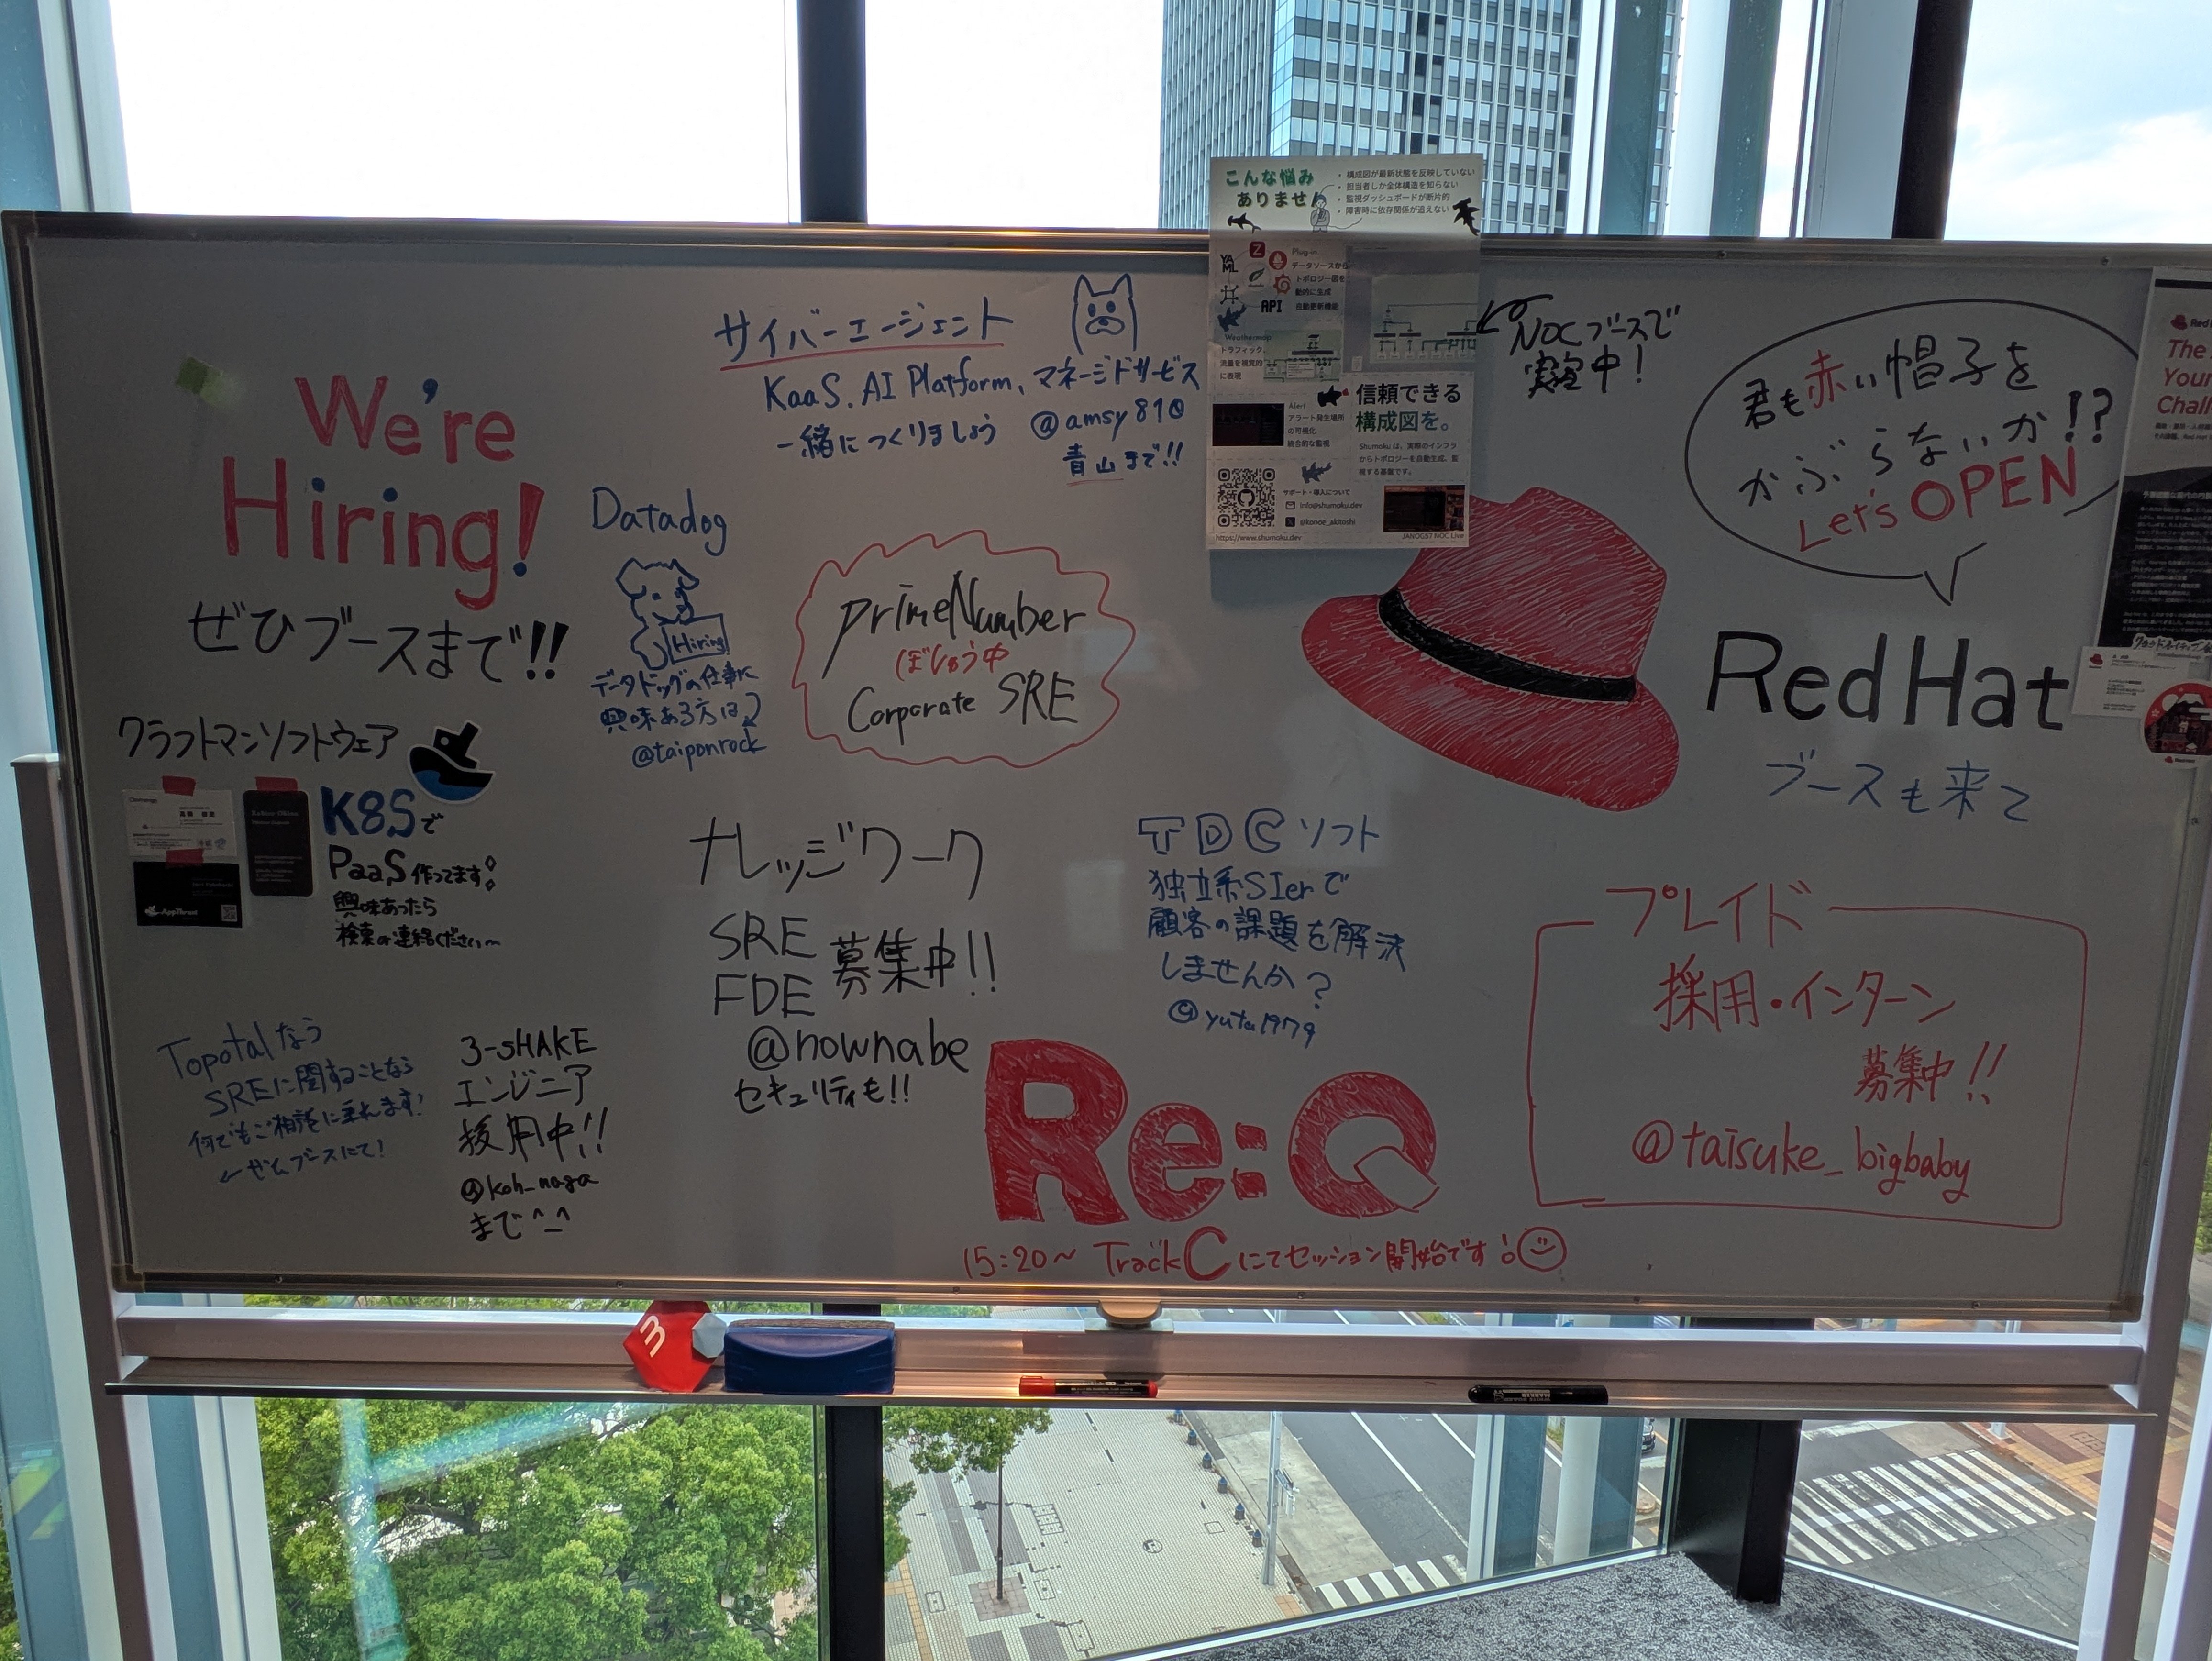 We're
Hiring!
ぜひブースまで!!
クラフトマンソフトウェア
K8Sで
PaaS作ってます!
興味あったら
検索or連絡ください〜
AppThrust
Topotalなう
SREに関することなら
何でもご相談に乗れます!
←ぜひブースにて!
3-sHAKE
エンジニア
採用中!!
@koh_naga
まで^_^
サイバーエージェント
KaaS、AI Platform、マネージドサービス
一緒につくりましょう
@amsy810
青山まで!!
Datadog
Hiring
データドッグの仕事に
興味ある方は
@taiponrock
PrimeNumber
ぼしゅう中
Corporate SRE
ナレッジワーク
SRE
FDE
募集中!!
@nownabe
セキュリティも!!
こんな悩み
ありません
・構成図が最新状態を反映していない
・担当者しか全体構造を知らない
・監視ダッシュボードが断片的
・障害時に依存関係が追えない
YAML
Z
API
Plug-in
データソースから
トポロジー図を
動的に生成
自動更新機能
Weathermap
トラフィック、
流量を視覚的
に表現
Alert
アラート発生場所
の可視化
統合的な監視
信頼できる
構成図を。
Shumoku は、実際のインフラ
からトポロジーを自動生成、監
視する基盤です。
サポート・導入について
info@shumoku.dev
@konoe_akitoshi
https://www.shumoku.dev
JANOG57 NOC Live
NOCブースで
実演中!
君も赤い帽子を
かぶらないか!?
Let's OPEN
RedHat
ブースも来て
TDCソフト
独立系SIerで
顧客の課題を解決
しませんか?
@yuta1979
Re:Q
15:20〜 TrackCにてセッション開始です!
プレイド
採用・インターン
募集中!!
@taisuke_bigbaby
Red
The
Your
Chall
3